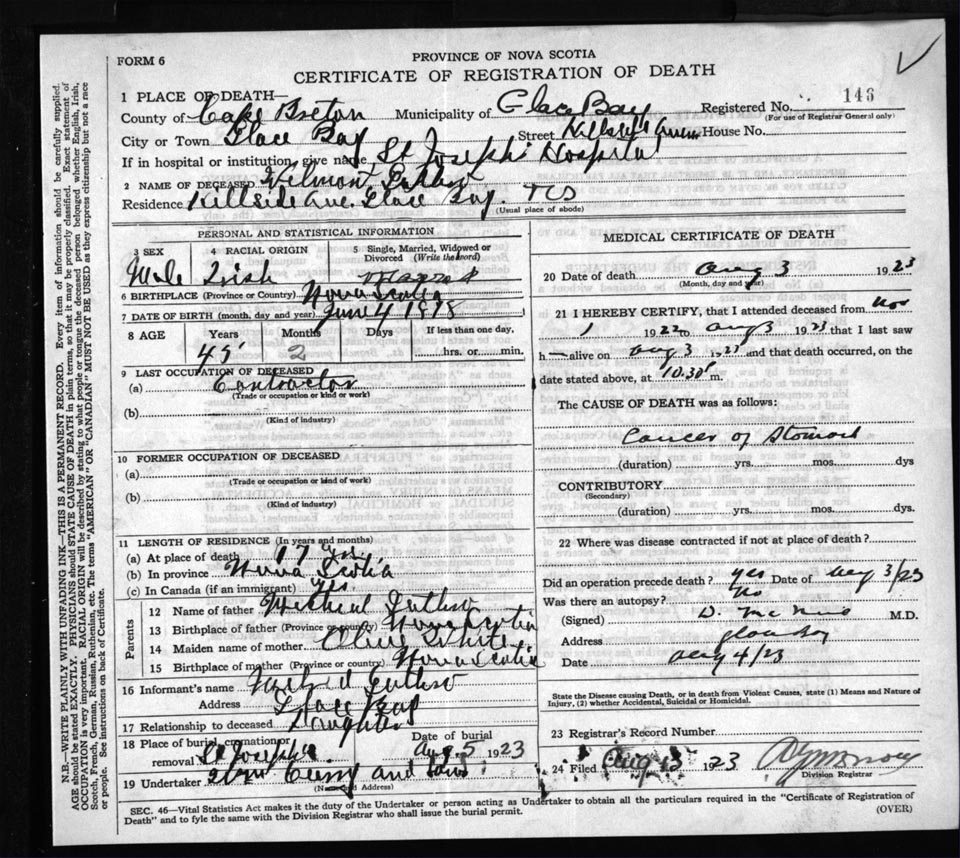 FORM 6
PROVINCE OF NOVA SCOTIA
CERTIFICATE OF REGISTRATION OF DEATH
1 PLACE OF DEATH—
County of Cape Breton Municipality of Glace Bay Registered No. 143
(For use of Registrar General only)
City or Town Glace Bay Street Hillside Avenue House No.
If in hospital or institution, give name St Joseph's Hospital
2 NAME OF DECEASED Wilmont
Residence Hillside Ave. Glace Bay.
(Usual place of abode)
PERSONAL AND STATISTICAL INFORMATION
3 SEX
Male
4 RACIAL ORIGIN
Irish
5 Single, Married, Widowed or Divorced (Write the word)
Married
6 BIRTHPLACE (Province or Country) Nova Scotia
7 DATE OF BIRTH (month, day and year) June 4 1878
8 AGE Years Months Days If less than one day,
45 2 hrs. or min.
9 LAST OCCUPATION OF DECEASED
(a) Contractor
(Trade or occupation or kind or work)
(b)
(Kind of industry)
10 FORMER OCCUPATION OF DECEASED
(a)
(Trade or occupation or kind of work)
(b)
(Kind of industry)
11 LENGTH OF RESIDENCE (In years and months)
(a) At place of death 17 yrs.
(b) In province Nova Scotia
(c) In Canada (if an immigrant) yrs.
Parents
12 Name of father Michael
13 Birthplace of father (Province or country) Nova Scotia
14 Maiden name of mother Olive White
15 Birthplace of mother (Province or country) Nova Scotia
16 Informant's name
Address Glace Bay
17 Relationship to deceased Daughter
18 Place of burial, cremation or removal St Joseph's
Date of burial
Aug. 5 1923
19 Undertaker Curry and Sons
(Name and Address)
MEDICAL CERTIFICATE OF DEATH
20 Date of death Aug 3 1923
(Month, day and year)
21 I HEREBY CERTIFY, that I attended deceased from Nov
1 1922 to Aug 3 1923 that I last saw
h— alive on Aug 3 1923 and that death occurred, on the
date stated above, at 10.30 m.
The CAUSE OF DEATH was as follows:
Cancer of Stomach
(duration) yrs. mos. dys
CONTRIBUTORY
(Secondary)
(duration) yrs. mos. dys.
22 Where was disease contracted if not at place of death?
Did an operation precede death? yes Date of Aug 3/23
Was there an autopsy? No
(Signed) D. M.D.
Address Glace Bay
Date Aug 4/23
State the Disease causing Death, or in death from Violent Causes, state (1) Means and Nature of
Injury, (2) whether Accidental, Suicidal or Homicidal.
23 Registrar's Record Number
24 Filed Aug 13 1923
Division Registrar
SEC. 46—Vital Statistics Act makes it the duty of the Undertaker or person acting as Undertaker to obtain all the particulars required in the "Certificate of Registration of
Death" and to fyle the same with the Division Registrar who shall issue the burial permit.
(OVER)
N.B.—WRITE PLAINLY WITH UNFADING INK—THIS IS A PERMANENT RECORD. Every item of information should be carefully supplied.
AGE should be stated EXACTLY. PHYSICIANS should STATE CAUSE OF DEATH in plain terms, so that it may be properly classified. Exact statement of
OCCUPATION is very important. RACIAL ORIGIN will be described by stating to what people or tongue the deceased person belonged, whether English, Irish,
Scotch, French, German, Russian, Ruthenian, etc. The terms "AMERICAN" or "CANADIAN" MUST NOT BE USED as they express citizenship but not a race
or people. See instructions on back of Certificate.